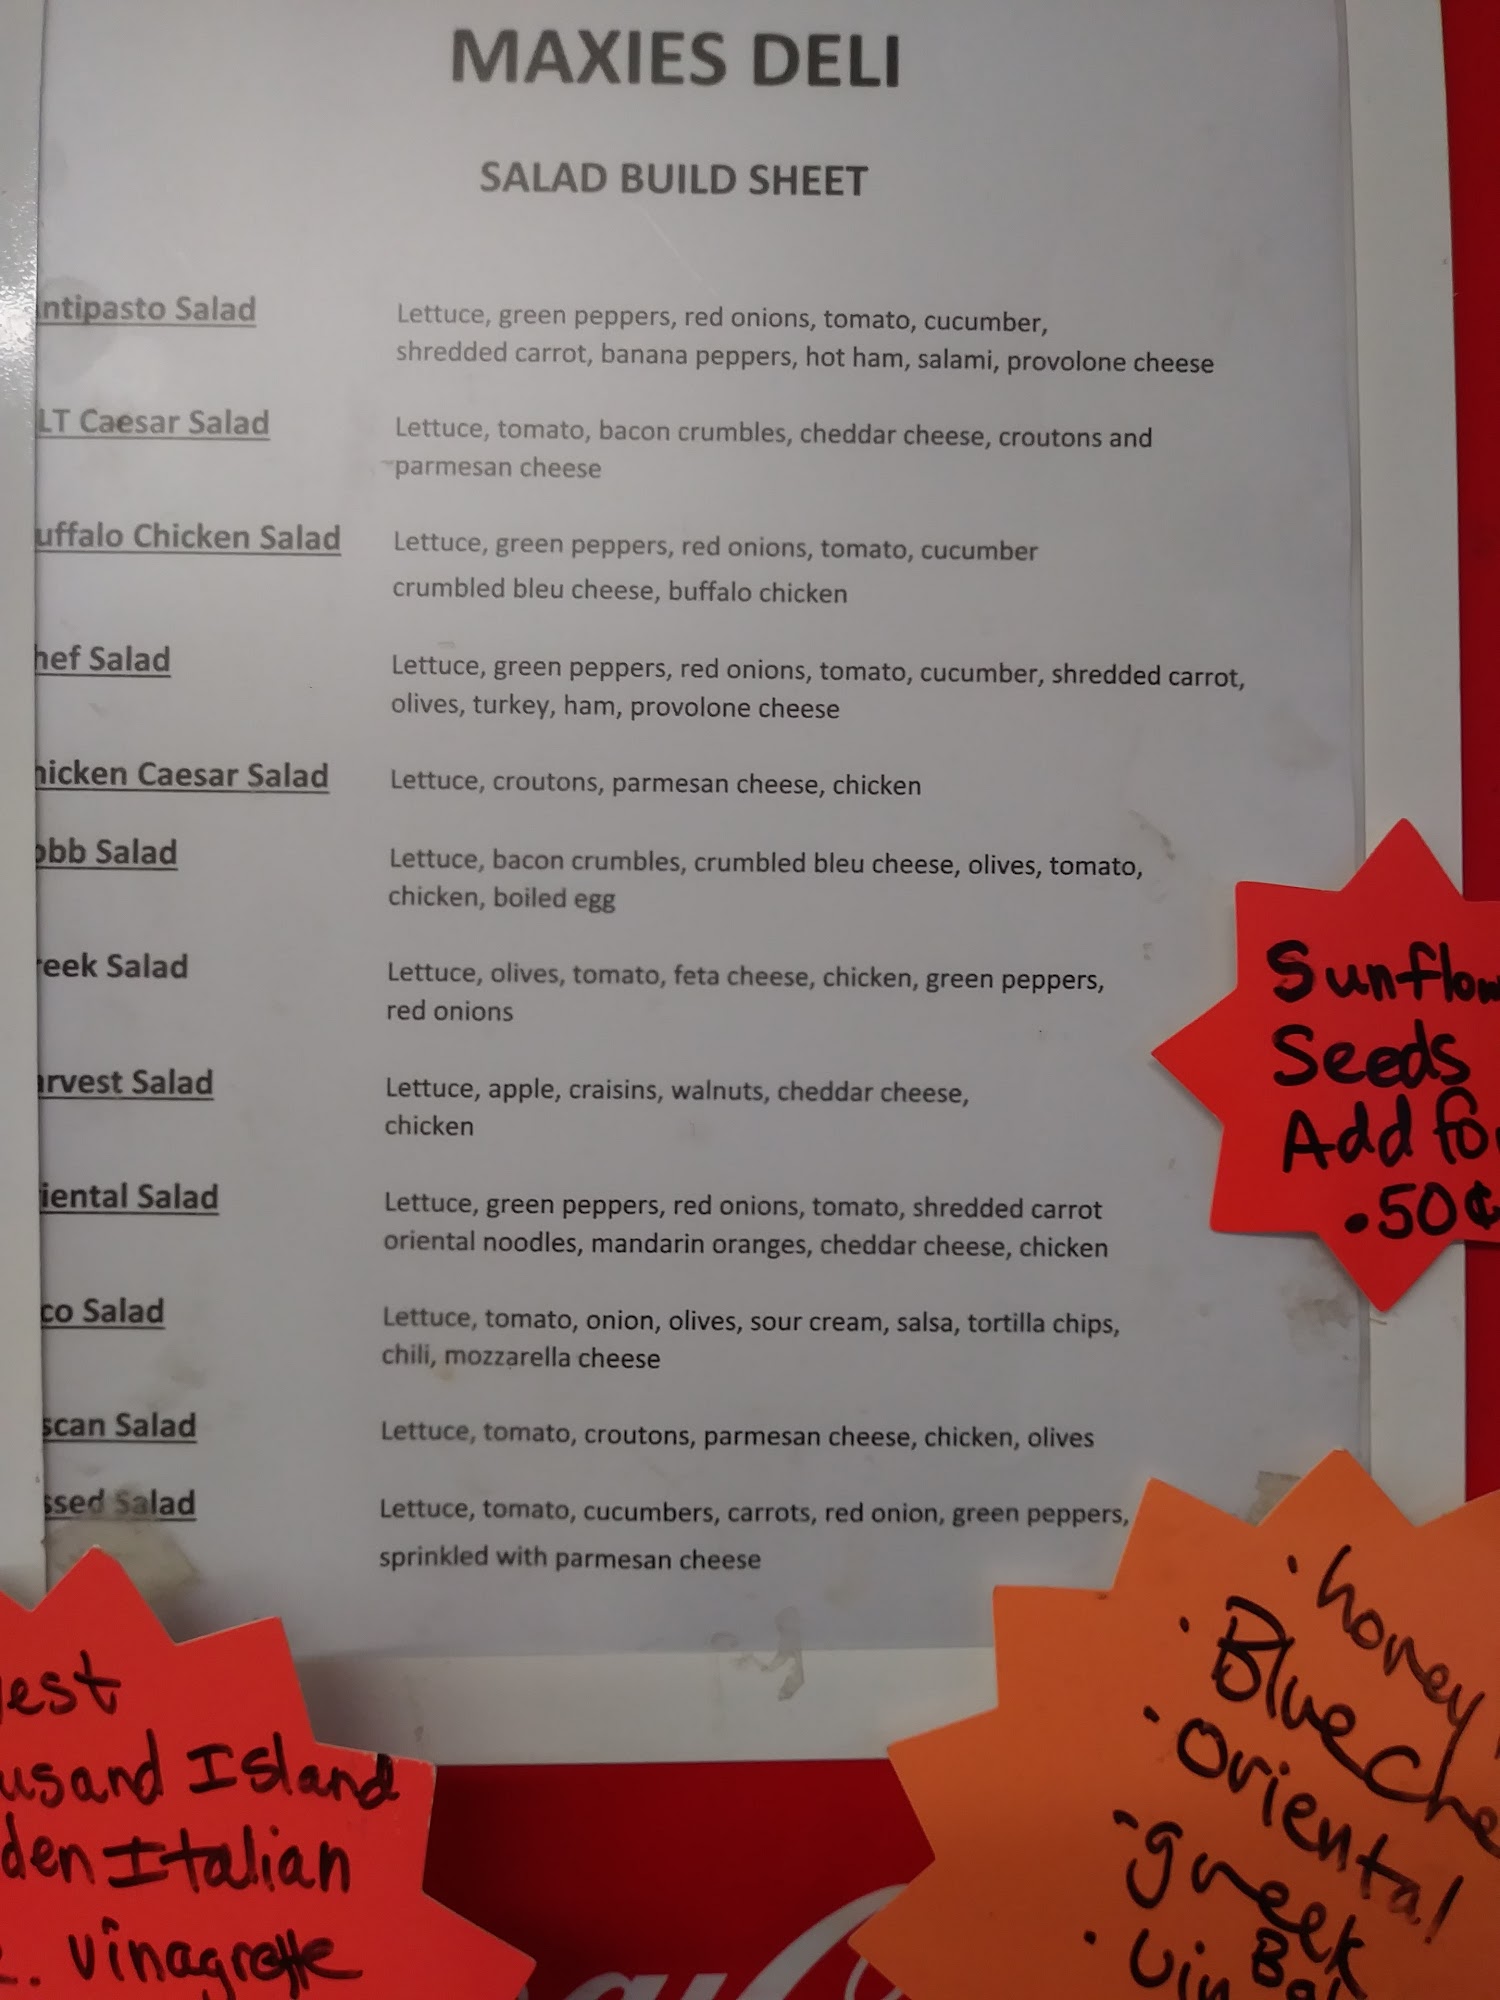 MAXIES DELI
SALAD BUILD SHEET
ntipasto Salad
Lettuce, green peppers, red onions, tomato, cucumber,
shredded carrot, banana peppers, hot ham, salami, provolone cheese
LT Caesar Salad
Lettuce, tomato, bacon crumbles, cheddar cheese, croutons and
parmesan cheese
uffalo Chicken Salad
Lettuce, green peppers, red onions, tomato, cucumber
crumbled bleu cheese, buffalo chicken
hef Salad
Lettuce, green peppers, red onions, tomato, cucumber, shredded carrot,
olives, turkey, ham, provolone cheese
hicken Caesar Salad
Lettuce, croutons, parmesan cheese, chicken
obb Salad
Lettuce, bacon crumbles, crumbled bleu cheese, olives, tomato,
chicken, boiled egg
reek Salad
Lettuce, olives, tomato, feta cheese, chicken, green peppers,
red onions
arvest Salad
Lettuce, apple, craisins, walnuts, cheddar cheese,
chicken
iental Salad
Lettuce, green peppers, red onions, tomato, shredded carrot
oriental noodles, mandarin oranges, cheddar cheese, chicken
co Salad
Lettuce, tomato, onion, olives, sour cream, salsa, tortilla chips,
chili, mozzarella cheese
scan Salad
Lettuce, tomato, croutons, parmesan cheese, chicken, olives
ssed Salad
Lettuce, tomato, cucumbers, carrots, red onion, green peppers,
sprinkled with parmesan cheese
Sunflow
Seeds
Add fo
.50¢
est
usand Island
den Italian
. vinagrette
· honey
· Blue Che
· Oriental
· greek
· Vin Bal